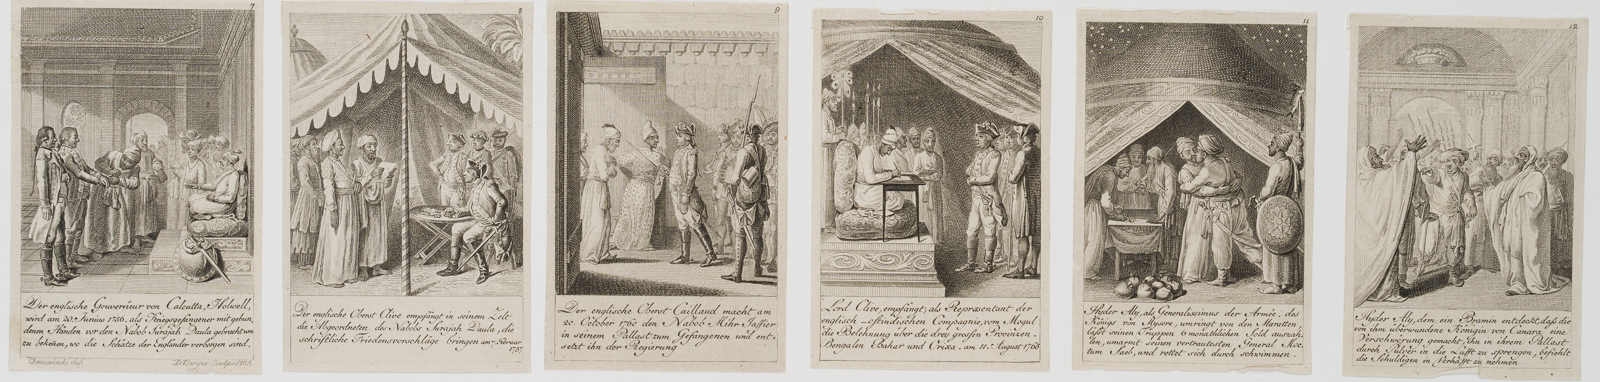 7
Der englische Gouverneur von Calcutta, Holwell,
wird am 20. Junius 1756. als Kriegsgefangener mit gebun,
denen Händen vor den Nabob Surajah Daula gebracht um
zu bekennen, wo die Schätze der Engländer verborgen sind.
D. Berger Sculps. 1785.
8
Der englische Oberst Clive empfängt in seinem Zelt
die Abgeordneten des Nabobs Surajah Daula, die
schriftliche Friedensvorschläge bringen am 7 Februar
1757
9
Der englische Oberst Caillaud macht am
20. October 1760 den Nabob Mihr Jaffier
in seinem Pallast zum Gefangenen und ent-
setzt ihn der Regierung
10
Lord Clive, empfängt, als Repræsentant der
englisch-ostindischen Compagnie, vom Mogul
die Belehnung über die drey grossen Provinzen,
Bengalen Bahar und Orixa. am 11. August 1765
11
Hyder Aly, als Generalissimus der Armée, des
Königs von Mysore, umringt von den Maratten,
läßt seinen Truppen 6 monathlichen Sold auszah
len, umarmt seinen vertrautesten General Moc,
tum Saeb, und rettet sich durch schwimmen.
12
Hyder Aly, dem ein Bramin entdeckt, daß die
von ihm überwundene Königin von Canara eine
Verschwörung gemacht, ihn in ihrem Pallast
durch Pulver in die Lufft zu sprengen, befiehlt
die Schuldigen in Verhafft zu nehmen